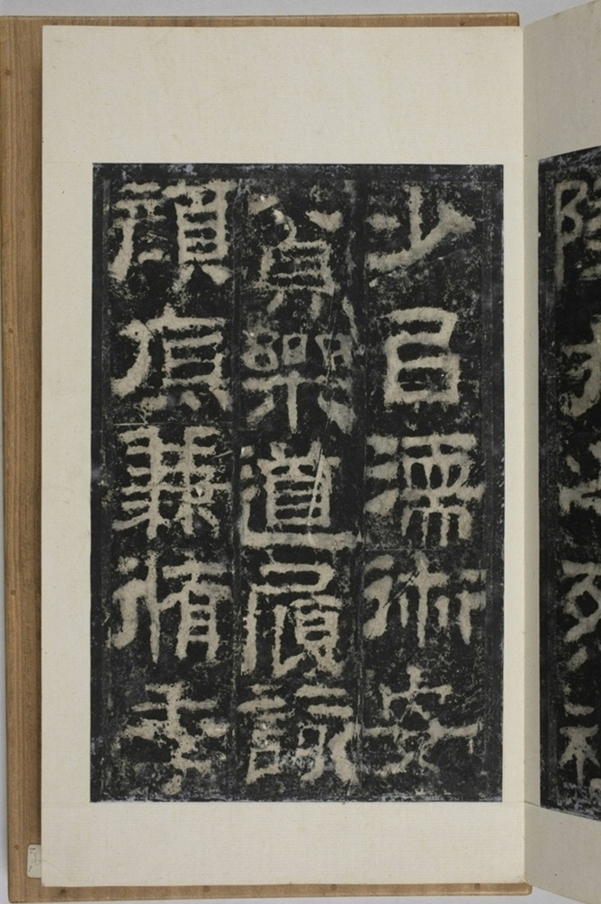 少㠯濡術安
貧樂道履該
顏原兼脩季